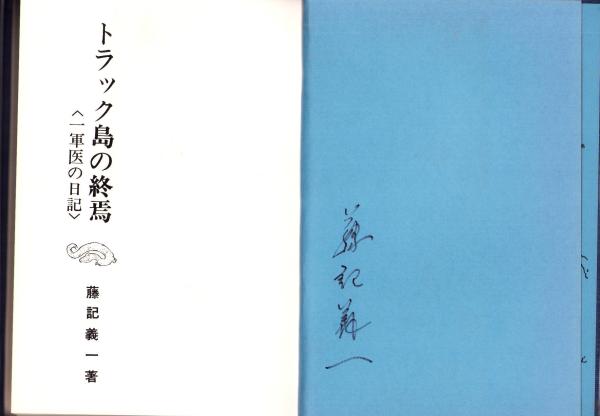 藤記義一
トラック島の終焉
〈一軍医の日記〉
藤記義一著